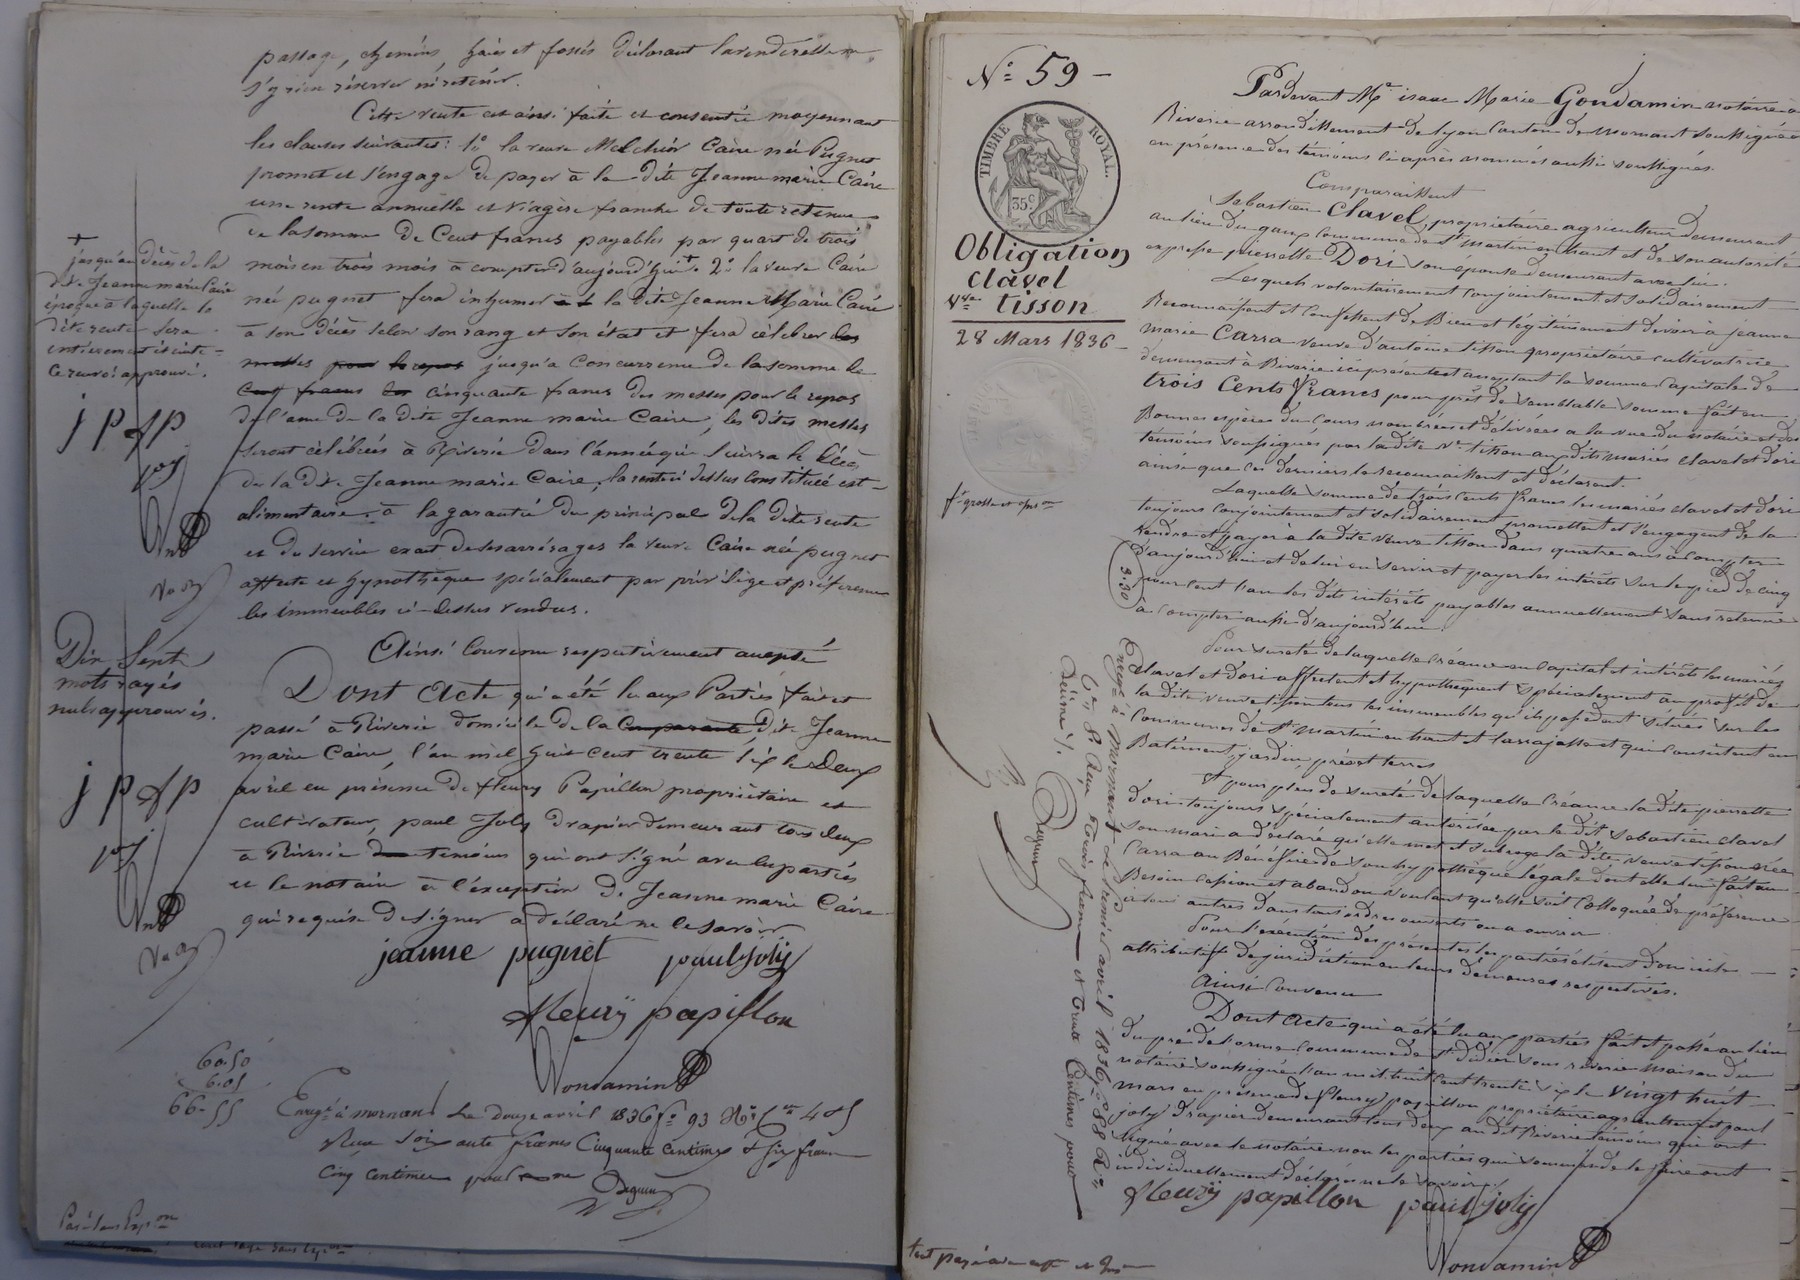 passage, chemins, haies et fossés déclorant la venderesse
s'y rien réserver ni retenir.
Cette vente est ainsi faite et consentie moyennant
les clauses suivantes: 1o la veuve Melchior Caire née Pugnet
promet et s'engage de payer à la dite Jeanne marie Caire
une rente annuelle et viagère franche de toute retenue
de la somme de Cent francs payables par quart de trois
mois en trois mois à compter d'aujourd'hui + 2o la veuve Caire
née pugnet fera inhumer la dite Jeanne Marie Caire
à son décès selon son rang et son état et fera célébrer des
messes pour le repos jusqu'à concurrence de la somme de
Cent francs cinquante francs des messes pour le repos
de l'ame de la dite Jeanne marie Caire, les dites messes
seront célébrées à Riverie dans l'année qui suivra le décès
de la dte Jeanne marie Caire, la rente ci dessus constituée est
alimentaire. à la garantie du principal de la dite rente
et du service exact des arrérages la veuve Caire née pugnet
affecte et hypothèque spécialement par privilège et préférence
les immeubles ci-dessus vendus.
Ainsi Convenu respectivement accepté
Dont Acte qui a été lu aux Parties fait et
passé à Riverie domicile de la Comparante dte Jeanne
marie Caire, l'an mil huit cent trente six le Deux
avril en présence de fleury Papillon propriétaire et
cultivateur, paul Joly drapier demeurant tous deux
à Riverie témoins qui ont signé avec les parties
et le notaire à l'exception de Jeanne marie Caire
qui requise de signer a déclaré ne le savoir
jeanne pugnet paul joly
fleury papillon
Gondamin
+
jusqu'au décès de la
dte Jeanne marie Caire
époque à laquelle la
dite rente sera
entièrement éteinte
Ce renvoi approuvé.
j p fp
pj
Dix Sept
mots rayés
nuls approuvés.
j p fp
pj
60.50
6.05
66-55
Enregé à mornant le Douze avril 1836 fo 93 Ro Ces 4 & 5
Reçu Soixante francs Cinquante Centimes & Six francs
Cinq centimes pour
No 59
TIMBRE ROYAL.
35c
Obligation
Clavel
Vve
tisson
28 Mars 1836
Pardevant Me isaac Marie Gondamin notaire à
Riverie arrondissement de Lyon Canton de mornant soussigné
en présence des témoins ci après nommés aussi soussignés.
Comparaissent
Sebastien Clavel, propriétaire agriculteur demeurant
au lieu du gaux Commune de St martin en haut et de son autorité
expresse pierrette Dori son épouse demeurant avec lui.
Lesquels volontairement conjointement et solidairement
Reconnaissent et Confessent de Bien et légitimement devoir à Jeanne
marie Carra veuve d'antoine tisson propriétaire cultivatrice
demeurant à Riverie ici présente et acceptant la somme Capitale de
trois Cents francs pour prêt de semblable somme fait en
Bonnes espèces du Cours nombrées et délivrées à la vue du notaire et des
témoins soussignés par la dite Ve tisson aux dits mariés clavel et dori
ainsi que ces derniers le reconnaissent et déclarent.
Laquelle somme de trois Cents francs les mariés clavel et dori
toujours Conjointement et solidairement promettent et s'engagent de la
Rendre et payer à la dite veuve tisson dans quatre ans à compter
d'aujourd'hui et de lui en servir et payer les intérêts sur le pied de cinq
pour cent l'an les dits intérêts payables annuellement sans retenue
à compter aussi d'aujourd'hui.
Pour sureté de laquelle créance en capital et intérêts les mariés
Clavel et dori affectent et hypothèquent spécialement au profit de
la dite veuve tisson tous les immeubles qu'ils possèdent situés sur les
Communes de St martin en haut et larrajasse et qui consistent en
Batiments, jardin, prés et terres
Et pour plus de sureté de laquelle Créance la dite pierrette
dori toujours spécialement autorisée par le dit sebastien clavel
son mari a déclaré qu'elle met et subroge la dite veuve tisson née
Carra au Bénéfice de son hypothèque légale dont elle lui fait au
Besoin Cession et abandon voulant qu'elle soit Colloquée de préférence
à tous autres dans tous ordres ouverts ou à ouvrir
Pour l'exécution des présentes les parties élisent domicile
attributif de juridiction en leurs demeures respectives.
Ainsi Convenu
Dont Acte qui a été lu aux parties fait et passé au lieu
du pré de l'orme Commune de St didier sous riverie maison du
notaire soussigné l'an mil huit cent trente six le vingt huit
mars en présence de fleury papillon propriétaire agriculteur et paul
joly drapier demeurant tous deux au dit Riverie témoins qui ont
signé avec le notaire non les parties qui sommées de le faire ont
individuellement déclaré ne le savoir.
fleury papillon paul joly
Gondamin
3.30
Enregé à Mornant le premier avril 1836 fo 88 Ro
Ces 8 Reçu trois francs et trente Centimes pour
décime